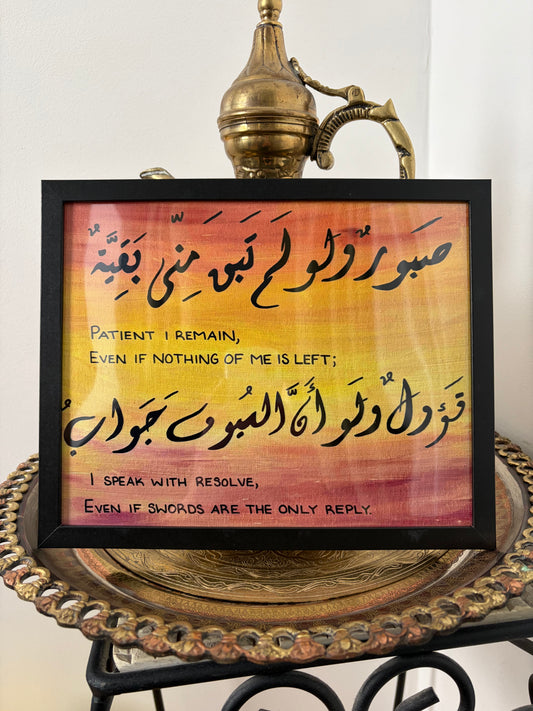 صَبورٌ ولو لَم تَبقَ مِنّي بَقِيَّةٌ
PATIENT I REMAIN,
EVEN IF NOTHING OF ME IS LEFT;
قَؤولٌ ولَو أَنَّ السُيوف جَوابُ
I SPEAK WITH RESOLVE,
EVEN IF SWORDS ARE THE ONLY REPLY.